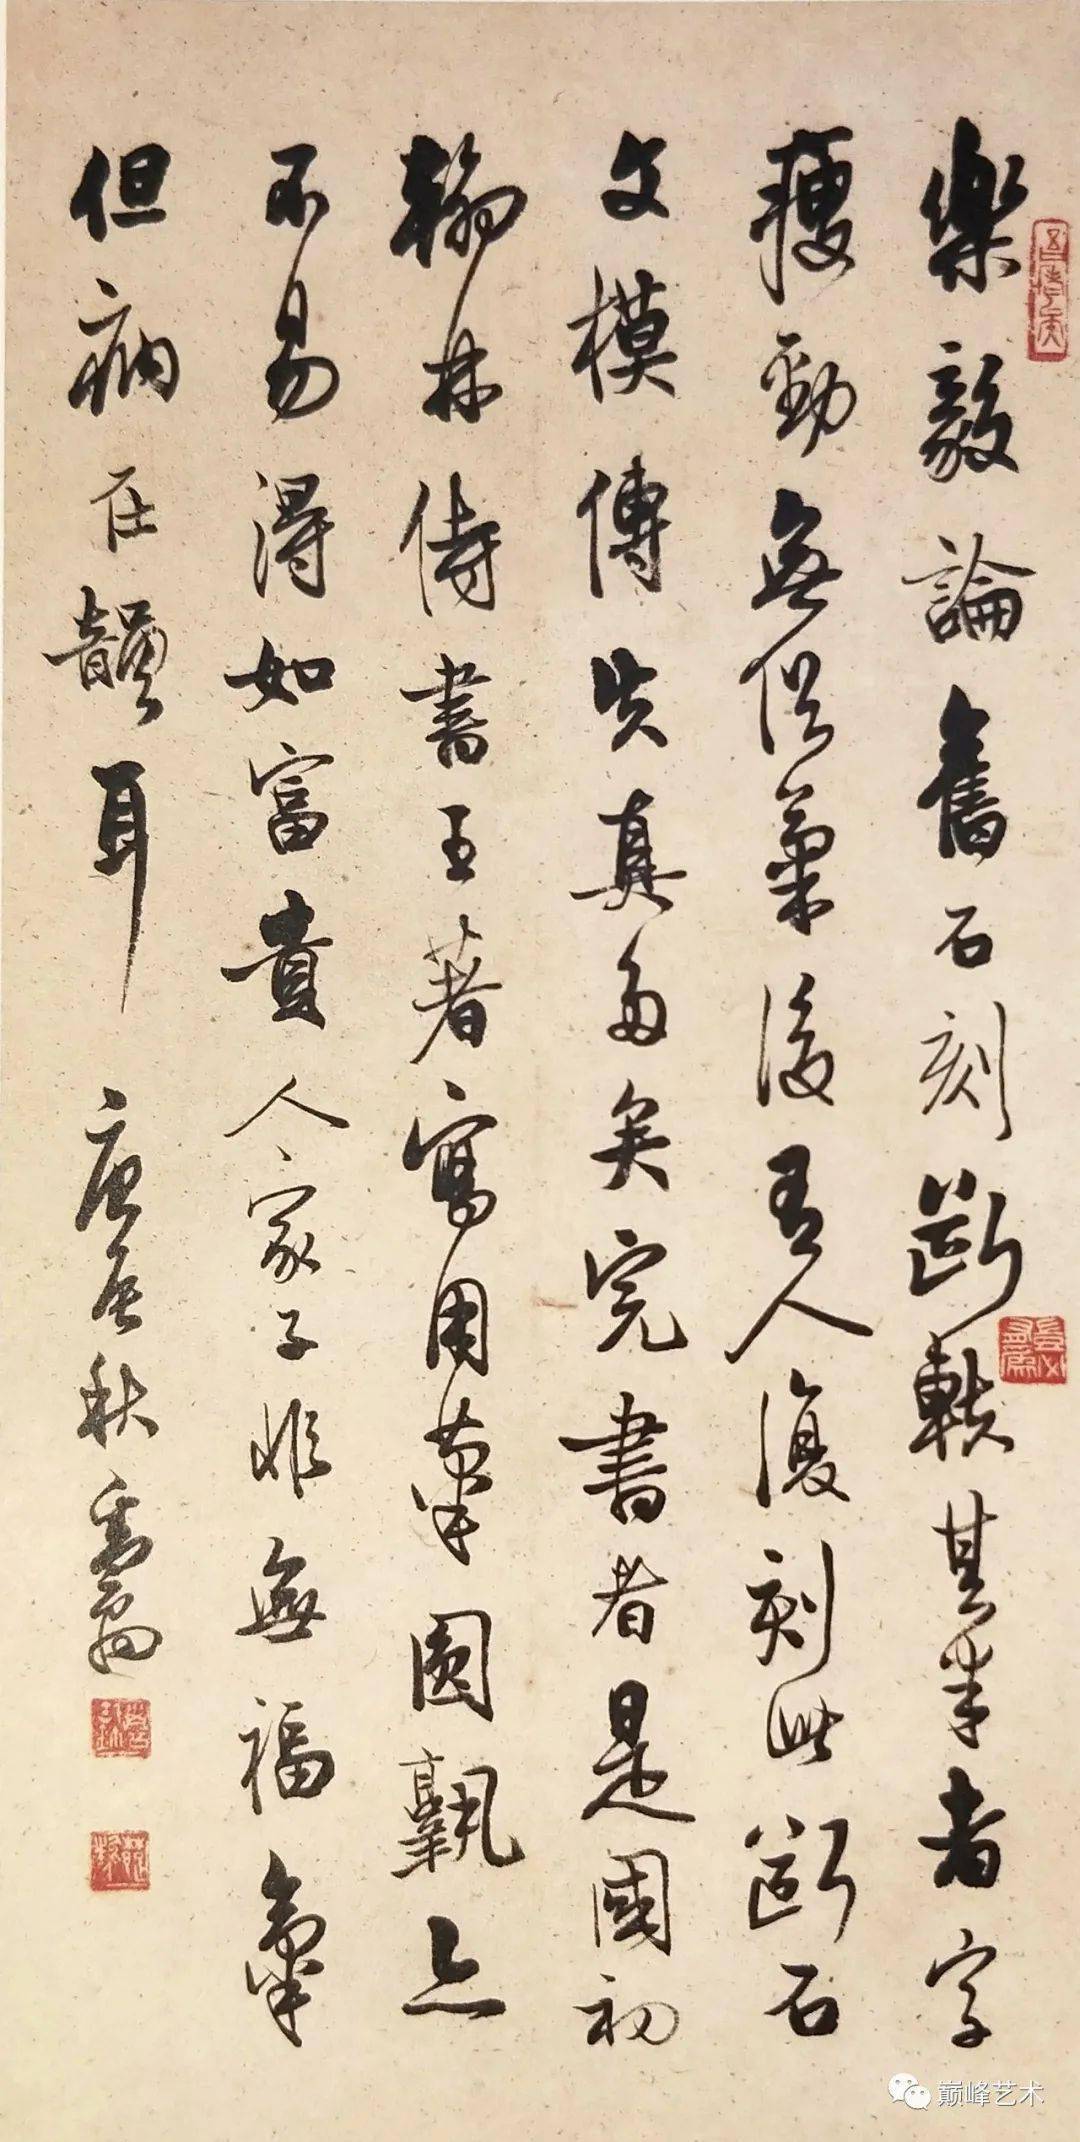 樂毅論舊石刻斷軼其半者字
瘦勁無俗氣後有人復刻此斷石
文模傳失真多矣完書者是國初
翰林侍書王著寫用筆圓熟亦
不易得如富貴人家子非無福氣
但病在韻耳 庚辰秋
巅峰艺术